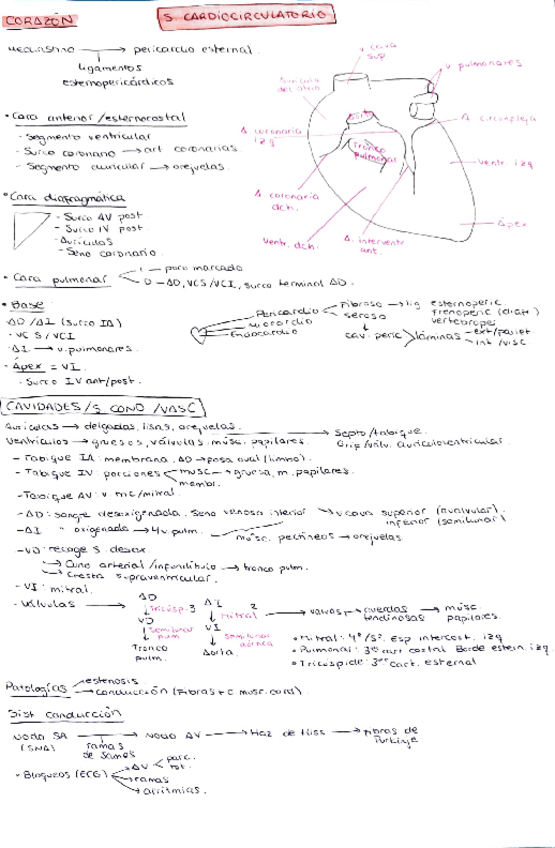 CORAZÓN
S CARDIOCIRCULATORIO
Mediastino → pericardio esternal.
ligamentos
esternopericárdicos
v cava sup
v. pulmonares
Aurícula
Aorta
Tronco pulmonar
A. circunfleja
A coronaria izq
ventr. izq
A. coronaria dch.
ventr. dch.
A. interventr ant.
Ápex
• Cara anterior/esternocostal
- Segmento ventricular
- Surco coronario → art coronarias.
- Segmento auricular → orejuelas.
• Cara diafragmática
- Surco AV post
- Surco IV post.
- Aurículas
- Seno coronario.
• Cara pulmonar
I — poco marcado
D — AD, VCS/VCI, surco terminal AD.
• Base:
AD/AI (surco IA)
- VCS/VCI
- AI → v. pulmonares.
- Ápex = VI.
- Surco IV ant/post.
Pericardio
Miocardio
Endocardio
Fibroso → lig
esternoperic.
frenoperic (diafr)
vertebroperi
seroso
cav. peric
láminas
ext/pariet.
int/visc
CAVIDADES/S COND/VASC
Aurículas → delgadas, lisas, orejuelas.
Ventrículos → gruesos, válvulas, músc. papilares.
Septo/tabique.
Orif/válv. auriculoventricular.
- Tabique IA: membrana. AD → fosa oval (limbo).
- Tabique IV porciones
musc → gruesa, m. papilares.
membr.
- Tabique AV: v. mitral.
- AD: sangre desoxigenada. Seno venoso interior → v cava superior (avalvular).
inferior (semilunar)
- AI " oxigenada → 4 v. pulm.
músc. pectíneos → orejuelas.
- VD: recoge S. desox.
→ Cono arterial/infundíbulo → tronco pulm.
→ Cresta supraventricular.
- VI: mitral.
- Válvulas →
AD
Tricúsp. 3
VD
Semilunar pulm
Tronco pulm.
AI
Mitral 2
VI
Semilunar aórtica
Aorta.
→ valvas → cuerdas tendinosas → músc papilares.
• Mitral: 4º/5º. Esp intercost. izq
• Pulmonar: 3er cart costal Borde estern. izq.
• Tricúspide: 3er cart. esternal
Patologías
estenosis
conducción (fibras + c musc. card).
Sist conducción
Nodo SA (SNA) → Nodo AV → Haz de Hiss → fibras de Purkinje
ramas
• Bloqueos (ECG)
AV
parc.
tot.
ramas
arritmias.